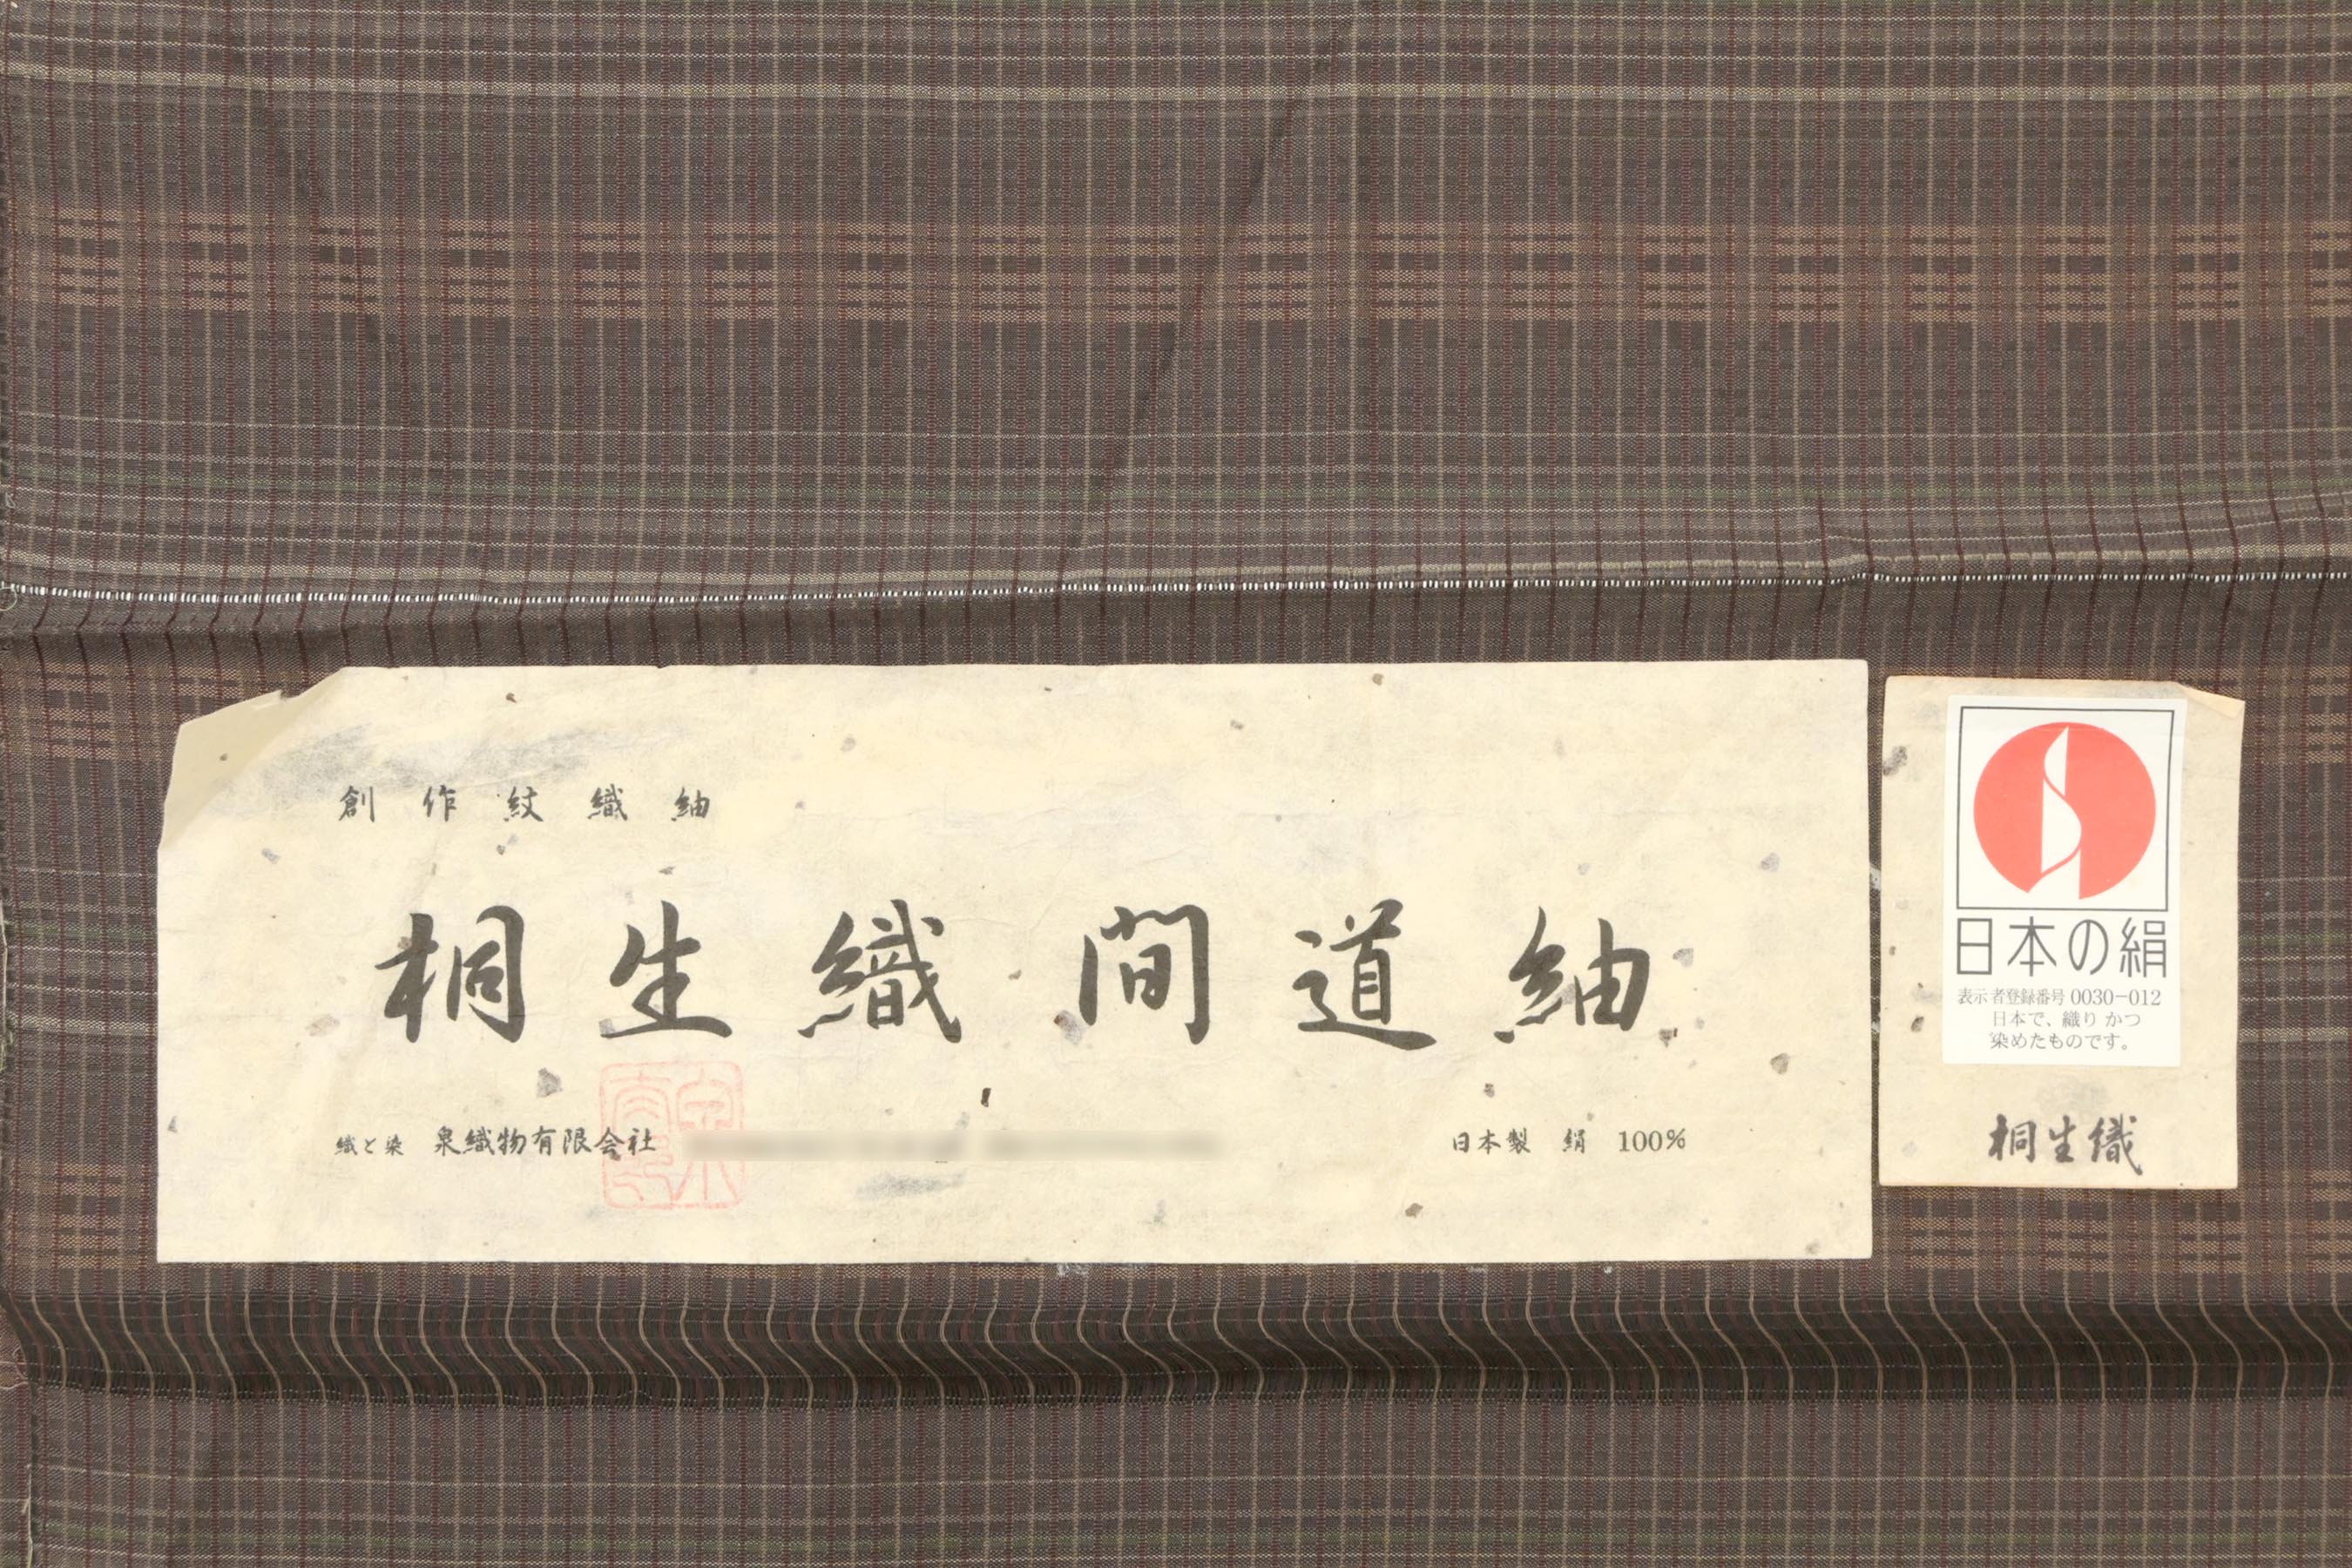 創作紋織紬
桐生織 間道紬
織と染 泉織物有限会社
日本製 絹 100%
日本の絹
表示者登録番号 0030-012
日本で、織り かつ
染めたものです。
桐生織